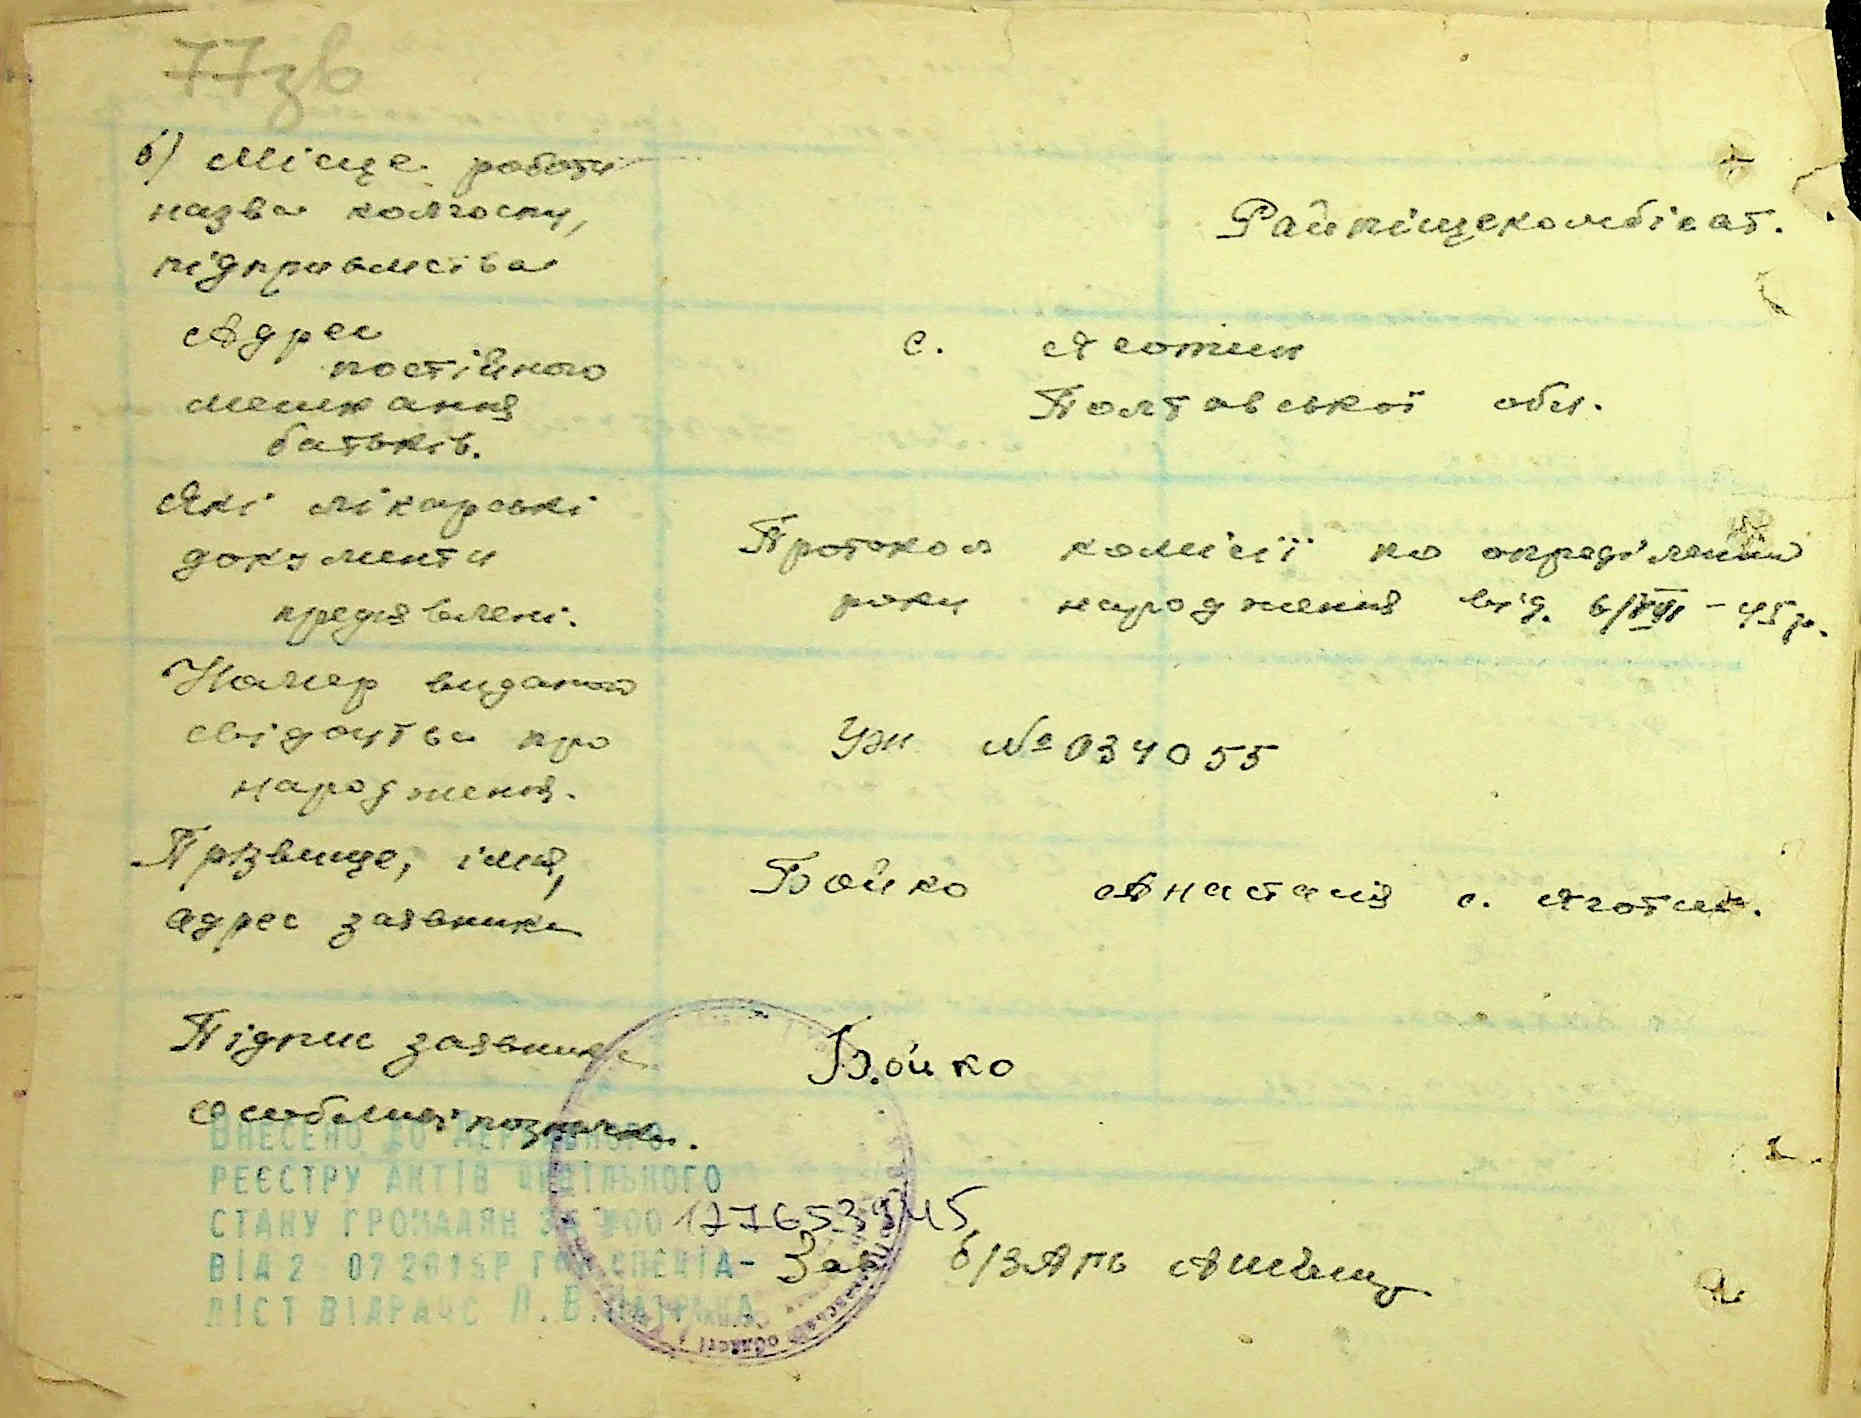 77зв
б) Місце роботи
назва колгоспу,
підприємства
Райпіщекомбінат.
Адрес
постійного
мешкання
батьків.
с. Яготин
Полтавської обл.
Які лікарські
документи
предявлені.
Протокол комісії по опреділенню
року народження від. 6/VIII - 45 р.
Номер виданого
свідоцтва про
народження.
УЖ №034055
Прізвище, імя,
адрес заявника
Бойко Анастасія с. Яготин.
Підпис заявника
Бойко
Особливі позначки.
ВНЕСЕНО ДО ДЕРЖАВНОГО
РЕЄСТРУ АКТІВ ЦИВІЛЬНОГО
СТАНУ ГРОМАДЯН ЗА №00
ВІД 2 07 2015Р ГОЛ СПЕЦІА-
ЛІСТ ВІДРАЦС
Зав. б/ЗАГЬ
області